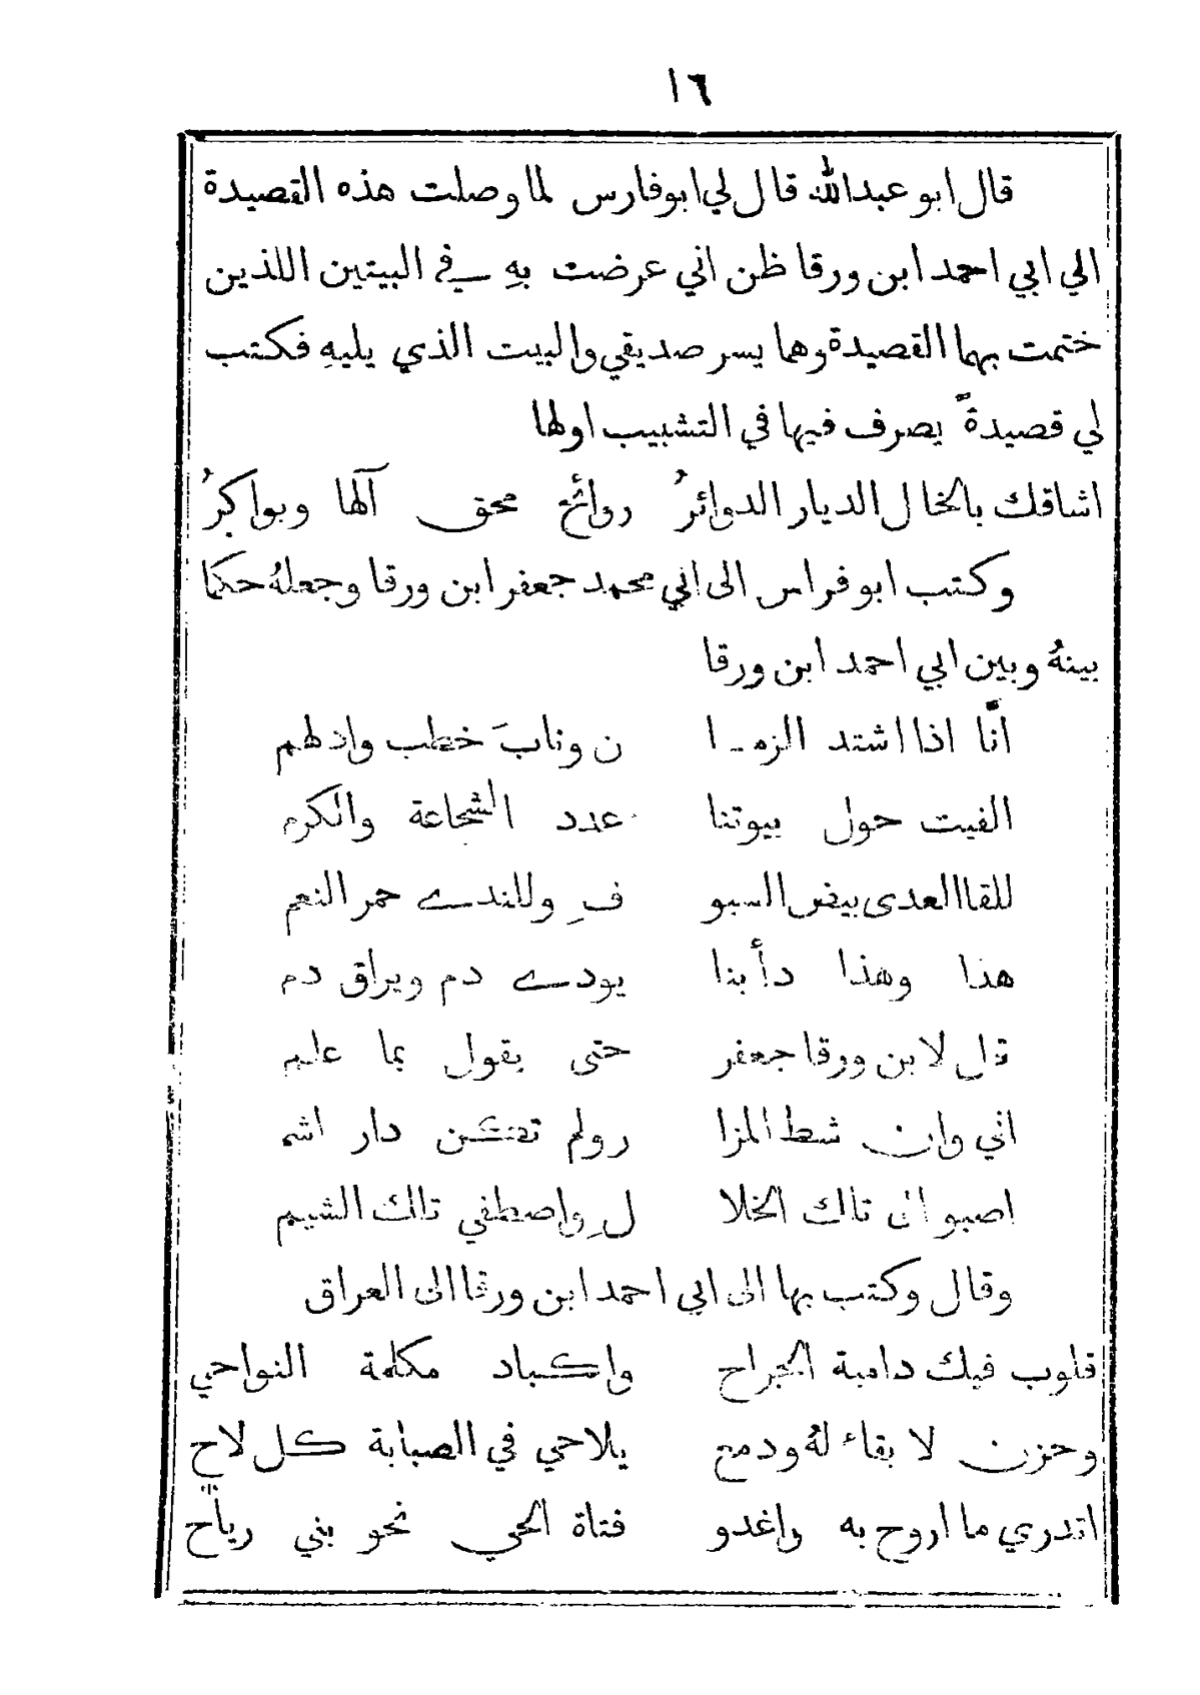 ١٦
قال ابو عبدالله قال لي ابوفارس لما وصلت هذه القصيدة
الي ابي احمد ابن ورقا ظن اني عرضت بهِ في البيتين اللذين
ختمت بهما القصيدة وهما يسر صديقي والبيت الذي يليهِ فكتب
لي قصيدةً يصرف فيها في التشبيب اولها
اشاقك بالخال الديار الدوائرُ روائح محق آلها وبواكرُ
وكتب ابو فراس الى ابي محمد جعفر ابن ورقا وجعلهُ حكما
بينهُ وبين ابي احمد ابن ورقا
أنّا اذا اشتد الزمـا ن ونابَ خطب وادلهم
الفيت حول بيوتنا عدد الشجاعة والكرم
للقا العدى بيض السيو فِ وللندے حمر النعم
هذا وهذا دأبنا يودے دم ويراق دم
قل لابن ورقا جعفر حتى يقول بما علم
اني وان شط المزا رولم تكن دار اشم
اصبو الى تلك الخلا لِ واصطفي تلك الشيم
وقال وكتب بها الى ابي احمد ابن ورقا الى العراق
قلوب فيك دامية الجراح واكباد مكلمة النواحي
وحزن لا بقاء لهُ ودمع يلاحي في الصبابة كل لاح
اتدري ما اروح به واغدو فتاة الحي نحو بني رياح